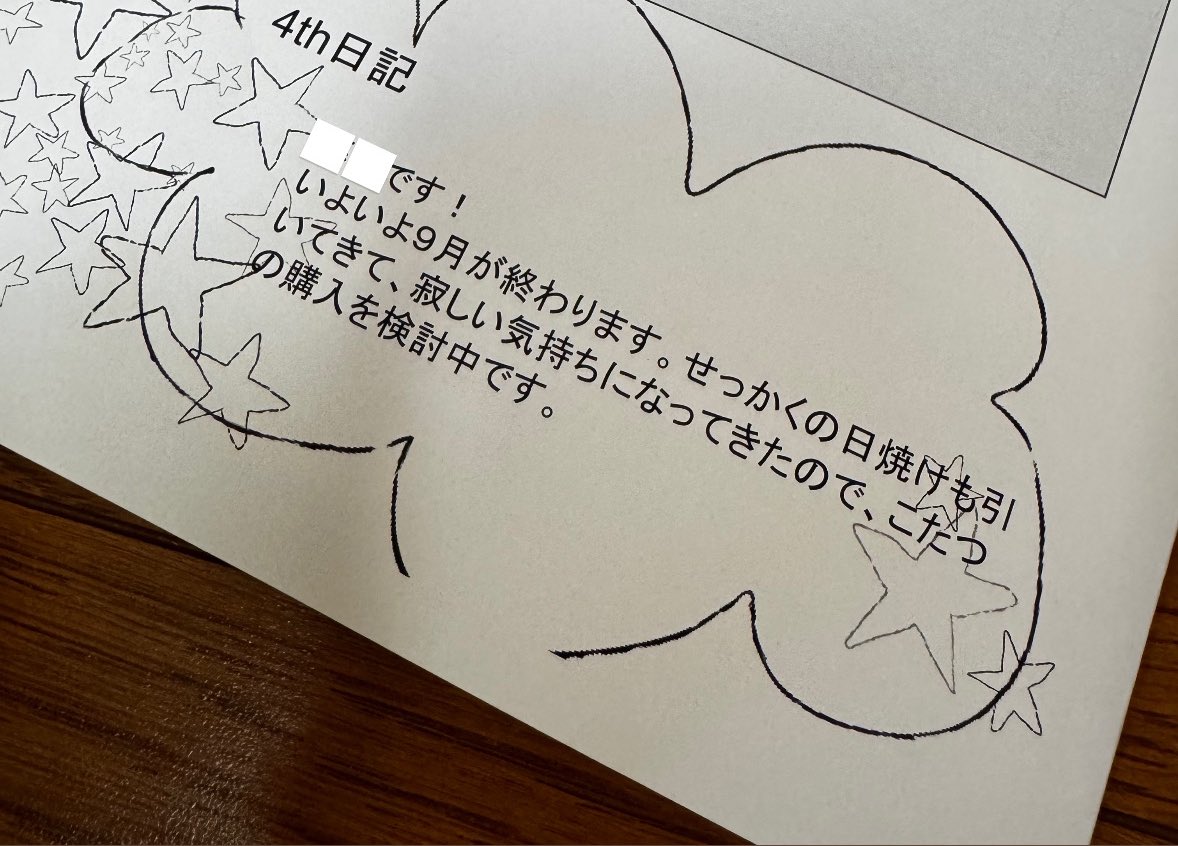 4th日記
です！
いよいよ9月が終わります。せっかくの日焼けも引
いてきて、寂しい気持ちになってきたので、こたつ
の購入を検討中です。